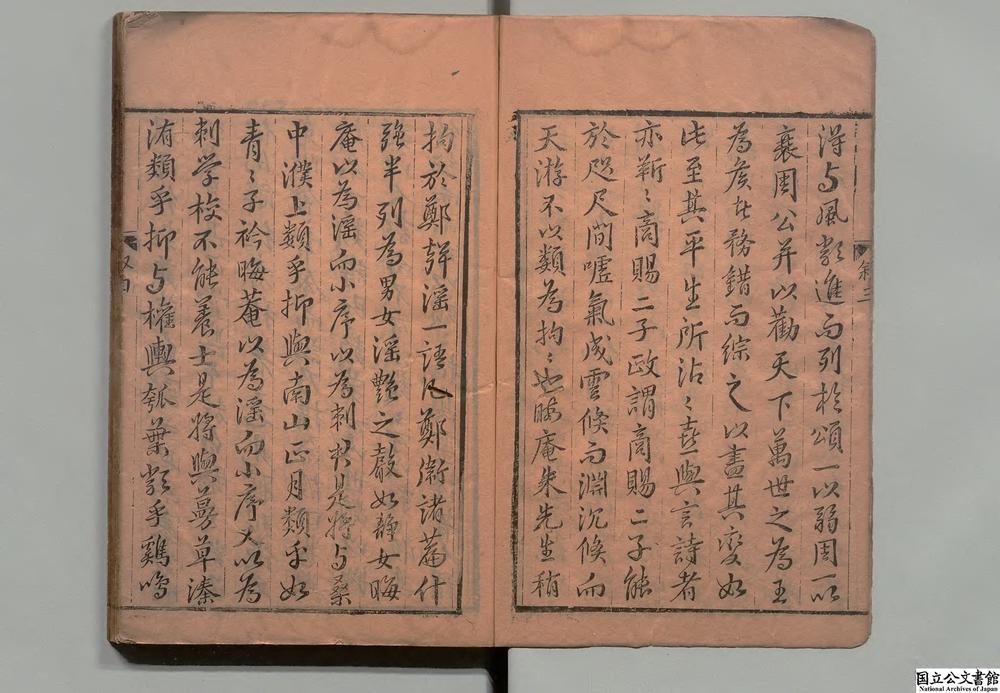 得与風影進而列於頌一以弱周一以
襄周公并以勸天下萬世之為王
為侯者務錯而綜之以盡其變如
此至其平生所沾〻喜與言詩者
亦靳〻商賜二子政謂商賜二子能
於咫尺間噓氣成雲倏而淵沉倏而
天游不以類為拘〻也晦庵朱先生稍
敘三
拘於鄭聲淫一語凡鄭衛諸篇什
強半列為男女淫艷之聲如靜女晦
庵以為淫而小序以為刺君是將与桑
中濮上類乎抑與南山正月類乎如
青〻子衿晦菴以為淫而小序又以為
刺学校不能養士是將與蔓草溱
洧類乎抑与權輿瓠葉類乎雞鳴
国立公文書館
National Archives of Japan